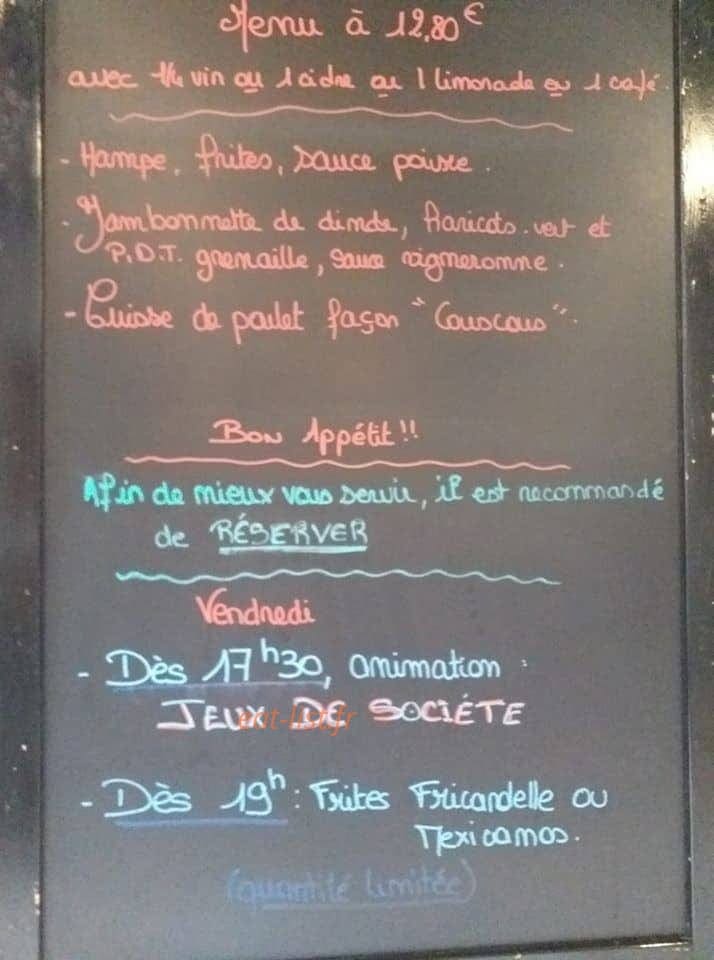 Menu à 12,80€
avec 1/4 vin ou 1 cidre ou 1 limonade ou 1 café.
- Hampe, frites, sauce poivre.
- Jambonnette de dinde, Haricots-vert et
P.D.T. grenaille, sauce vigneronne.
- Cuisse de poulet façon "Couscous".
Bon Appétit!!
Afin de mieux vous servir, il est recommandé
de RÉSERVER
Vendredi
- Dès 17h30, animation :
JEUX DE SOCIÉTE
eat-list.fr
- Dès 19h : Frites Fricandelle ou
Mexicanos.
(quantité limitée)